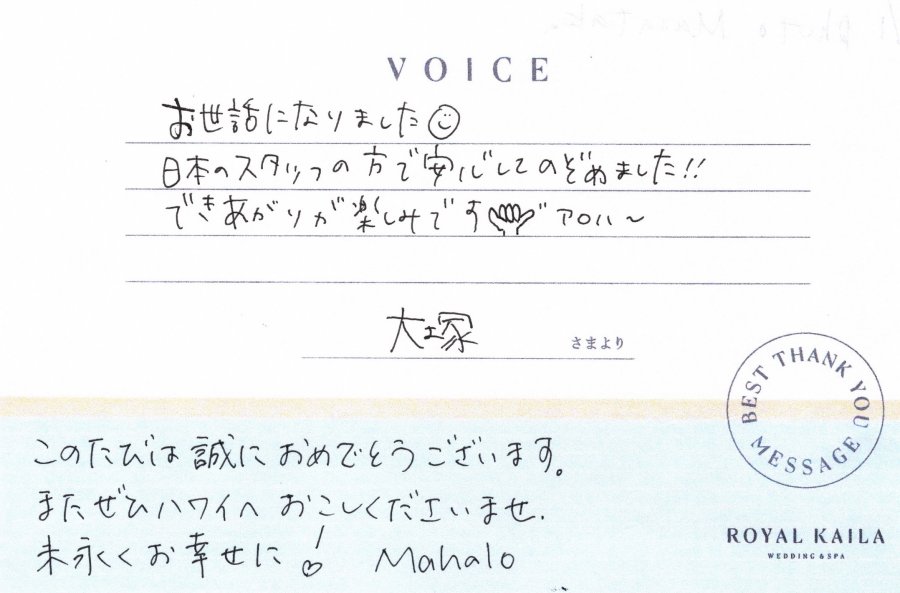 VOICE
お世話になりました
日本のスタッフの方で安心してのぞめました!!
できあがりが楽しみです アロハ〜
大塚 さまより
BEST THANK YOU MESSAGE
このたびは誠におめでとうございます。
またぜひハワイへおこしくださいませ.
末永くお幸せに! Mahalo
ROYAL KAILA
WEDDING & SPA